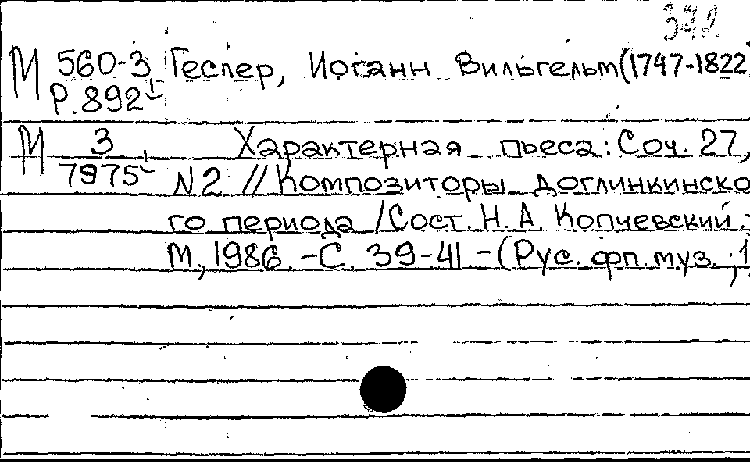 372
М 560-3 Геслер, Иоганн Вильгельм (1747-1822
Р.892
М 3 Характерная пьеса: Соч. 27,
7975 N2 // Композиторы доглинкинско
го периода / Сост. Н. А. Копчевский.-
М., 1986. - С. 39-41 - (Рус. фп. муз. ; 1